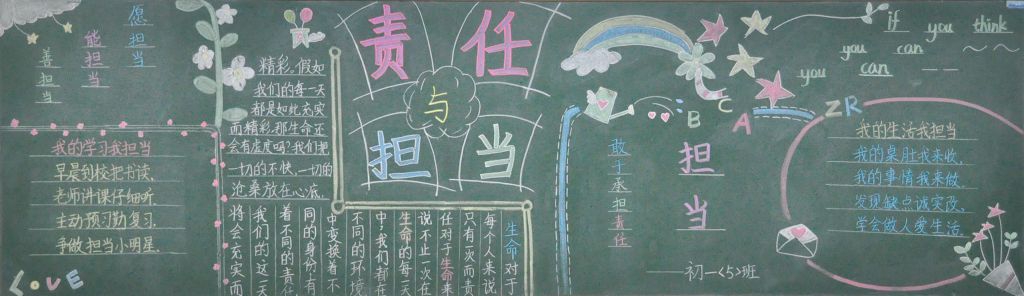 愿担当
能担当
善担当
我的学习我担当
早晨到校把书读,
老师讲课仔细听
主动预习勤复习.
争做担当小明星.
LOVE
责任
与
担当
生命对于
每个人来说
只有一次而责
任对于生命来
说不止一次在
生命的每一天
中,我们都在
不同的环境
中变换着不
同的身份,有
着不同的责任
我们的这一天
将会充实而
精彩。假如
我们的每一天
都是如此充实
而精彩,那生命还
会有虚度吗?我们把
一切的不快,一切的
沧桑放在心底.
A
B
C
担当
敢于承担责任
——初一<5>班
if you think
you can ~~
you can ——
ZR
我的生活我担当
我的桌肚我来收.
我的事情我来做.
发现缺点诚实改.
学会做人爱生活